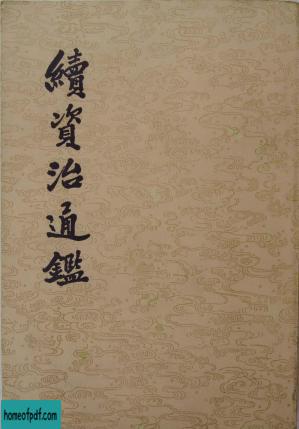 續資治通鑑
homeofpdf.com